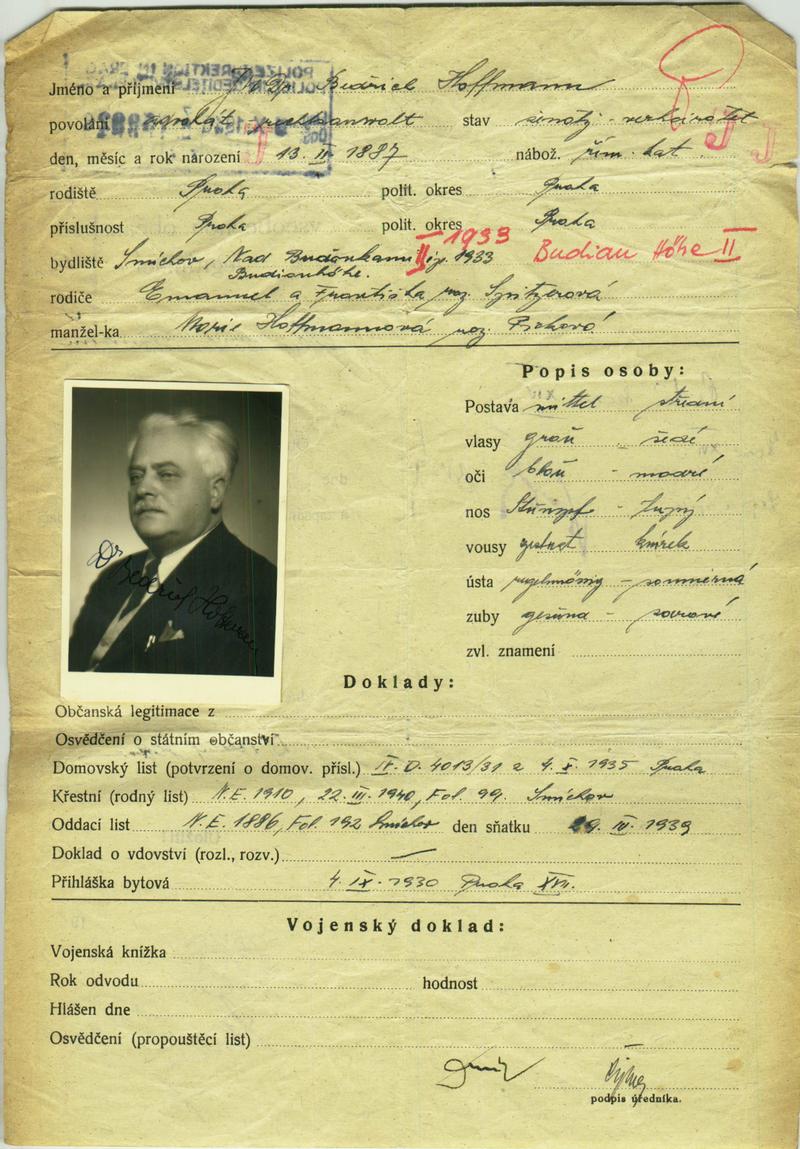 POLIZEIDIREKTION IN PRAG
Jméno a příjmení Bedřich Hoffmann
povolání advokát rechtsanwalt stav ženatý - verheiratet
J J J
den, měsíc a rok narození 13. 1887 nábož. řím. kat.
rodiště Praha polit. okres Praha
příslušnost Praha polit. okres Praha
bydliště Smíchov, Nad Buďánkami II čp. 1933
II 1933 Budian Höhe II
Budianhöhe.
rodiče Emanuel a Františka roz. Spitzerová
manžel-ka Marie Hoffmannová roz.
Popis osoby:
Postava mittel střední
vlasy grau - šedé
oči blau - modré
nos Stumpf - tupý
vousy gestutzt knírek
ústa regelmässig - souměrná
zuby gesund - zdravé
zvl. znamení
Dr Bedřich Hoffmann
Doklady:
Občanská legitimace z
Osvědčení o státním občanství
Domovský list (potvrzení o domov. přísl.) IV. D. 4013/31 z 4. X. 1935 Praha
Křestní (rodný list) N.E. 1910, 22. III. 1940, Fol. 99. Smíchov
Oddací list N.E. 1886, Fol. 192 Smíchov den sňatku 29. IV. 1939
Doklad o vdovství (rozl., rozv.) —
Přihláška bytová 4. IX. 1930 Praha XVI.
Vojenský doklad:
Vojenská knížka
Rok odvodu hodnost
Hlášen dne
Osvědčení (propouštěcí list)
podpis úředníka.